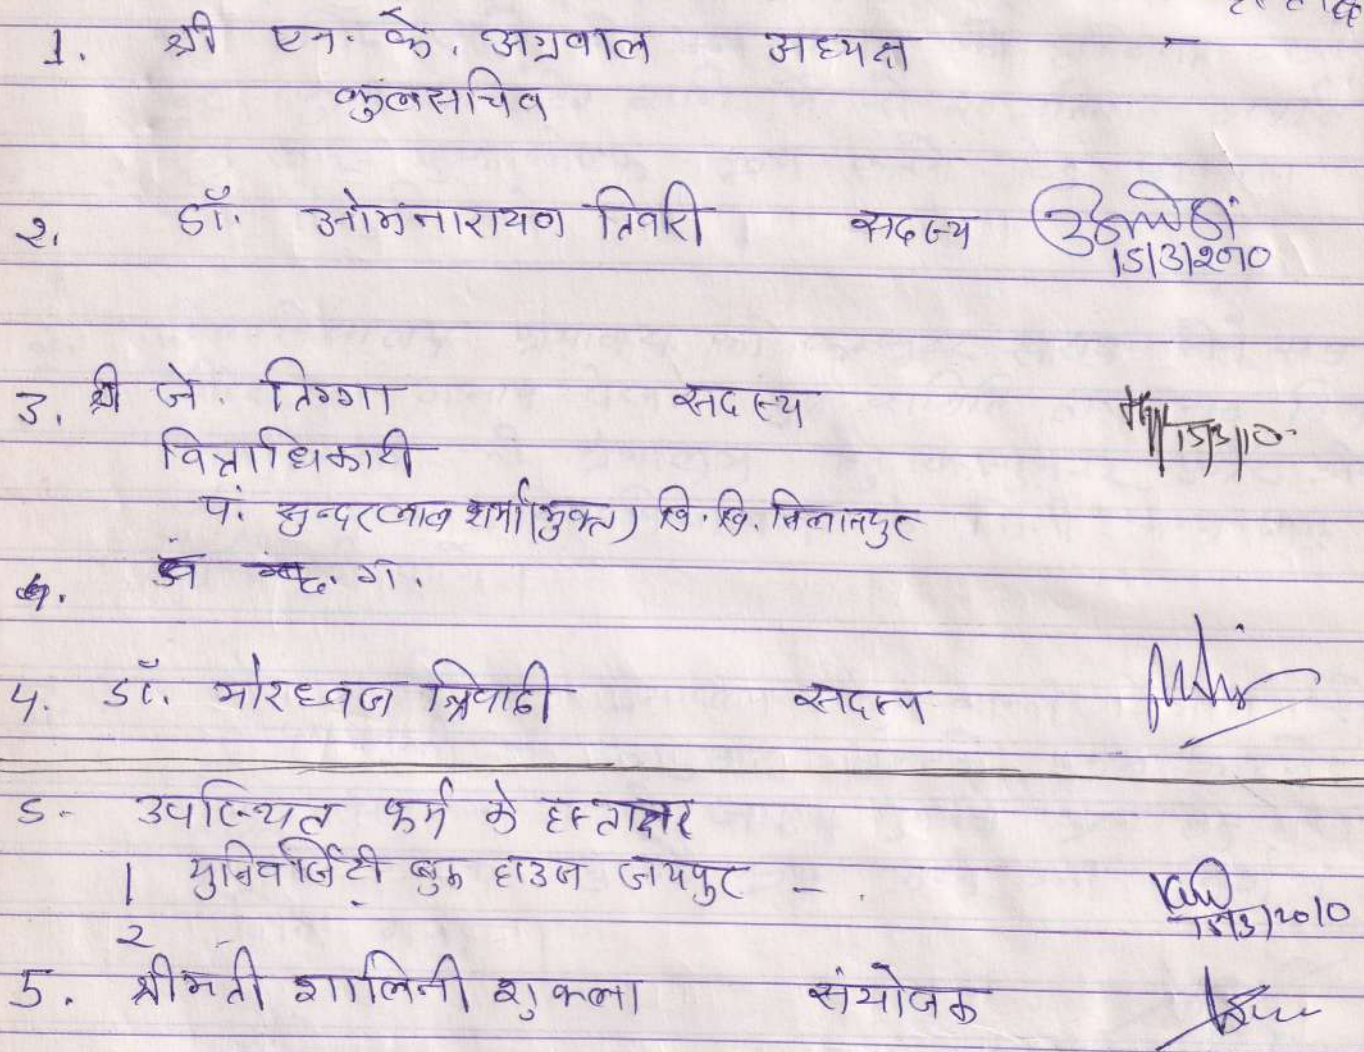 1. श्री एन. के. अग्रवाल अध्यक्ष -
कुलसचिव
2. डॉ. ओमनारायण तिवारी सदस्य
15/3/2010
3. श्री जे. तिग्गा सदस्य
15/3/10
वित्ताधिकारी
पं. सुन्दरलाल शर्मा (मुक्त) वि. वि. बिलासपुर
छ. ग.
4. डॉ. मोरध्वज त्रिपाठी सदस्य
5- उपस्थित फर्म के हस्ताक्षर
1 युनिवर्सिटी बुक हाउस जयपुर -
15/3/2010
2
5. श्रीमती शालिनी शुक्ला संयोजक